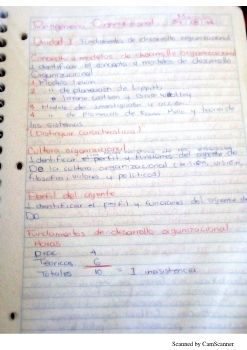 Unidad I Fundamentos de desarrollo organizacional
Concepto y modelos de desarrollo organizacional
1 identificar el concepto y modelos de desarrollo
Organizacional
1 Modelo Lewin
2 " de planeación de Lippitt
3 Modelo de investigación y acción
4 " de
los sistemas
(Distinguir características)
Cultura organizacional
1 identificar el perfil y funciones del agente de
DO la cultura organizacional (misión, visión,
filosofía, valores y políticas)
Perfil del agente
1 identificar el perfil y funciones del agente de
DO
Fundamentos de desarrollo organizacional
Horas
4
Teóricas 6
Totales 10 = 1 inasistencia
Scanned by CamScanner